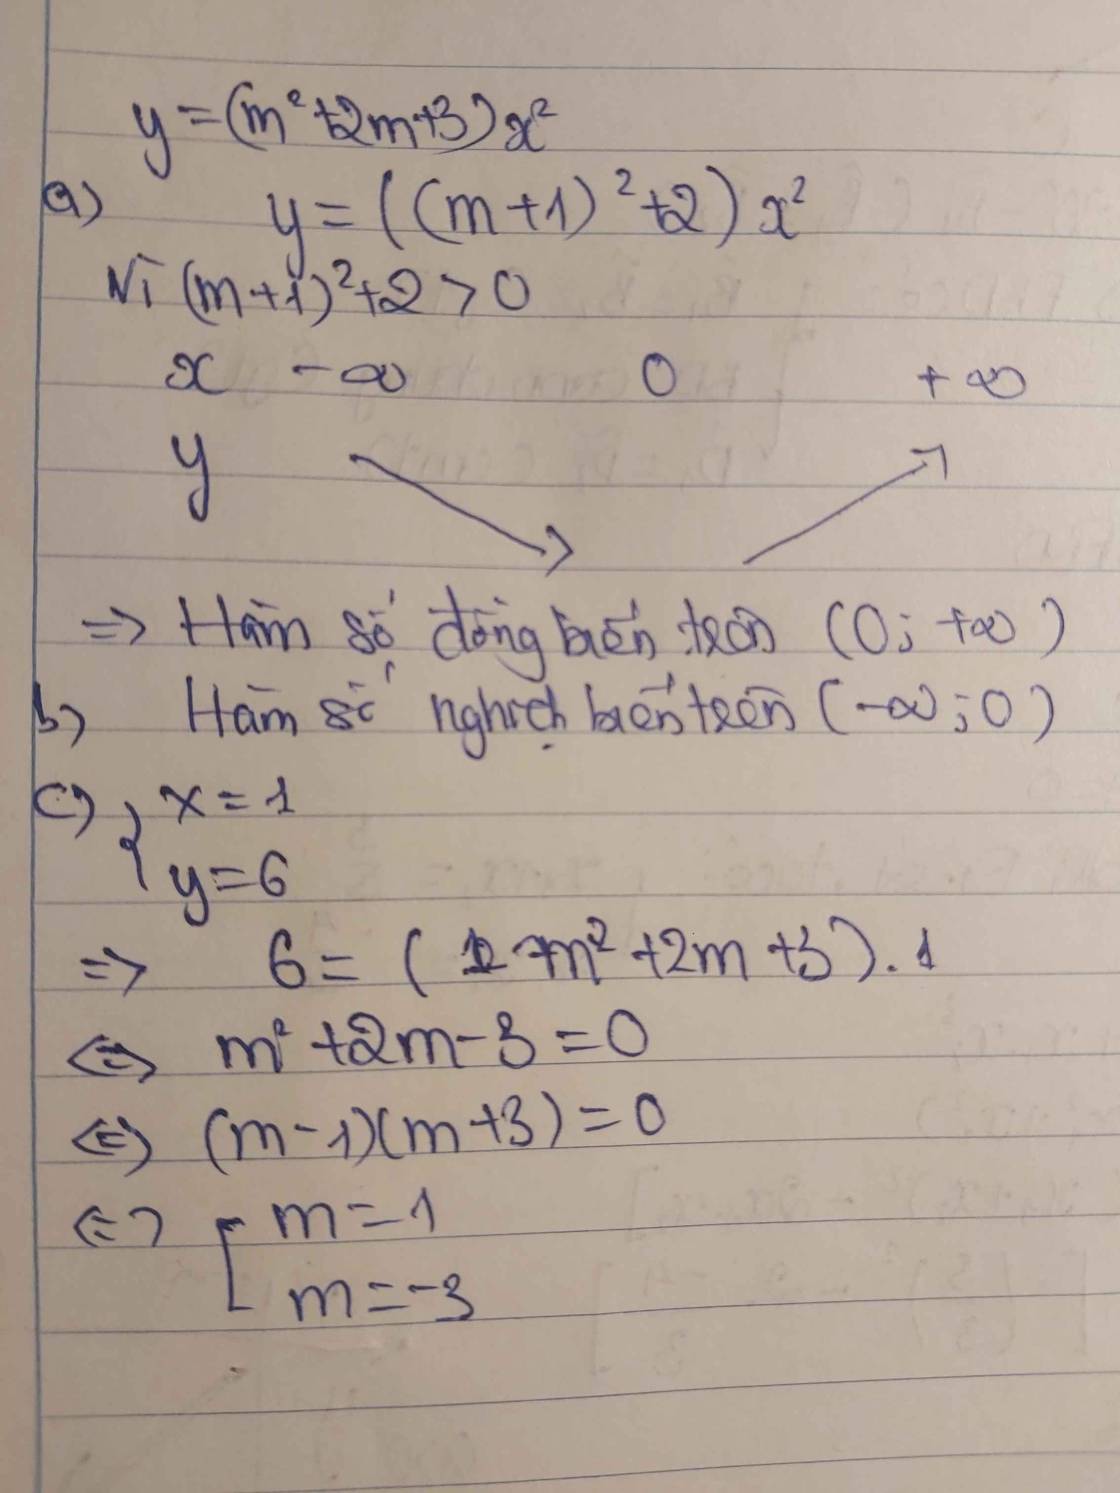 y = (m² + 2m + 3)x²
a) y = ((m + 1)² + 2) x²
Vì (m + 1)² + 2 > 0
x -∞ 0 +∞
y
=> Hàm số đồng biến trên (0; +∞)
b) Hàm số nghịch biến trên (-∞; 0)
c) { x = 1
y = 6
=> 6 = (m² + 2m + 3).1
<=> m² + 2m - 3 = 0
<=> (m - 1)(m + 3) = 0
<=> [ m = 1
m = -3